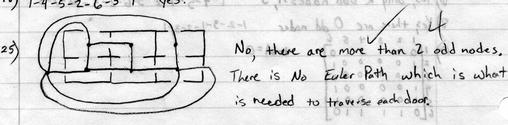 1-4-5-2-6-3 1 yes.
4
25) No, there are more than 2 odd nodes.
There is No Euler Path which is what
is needed to traverse each door.